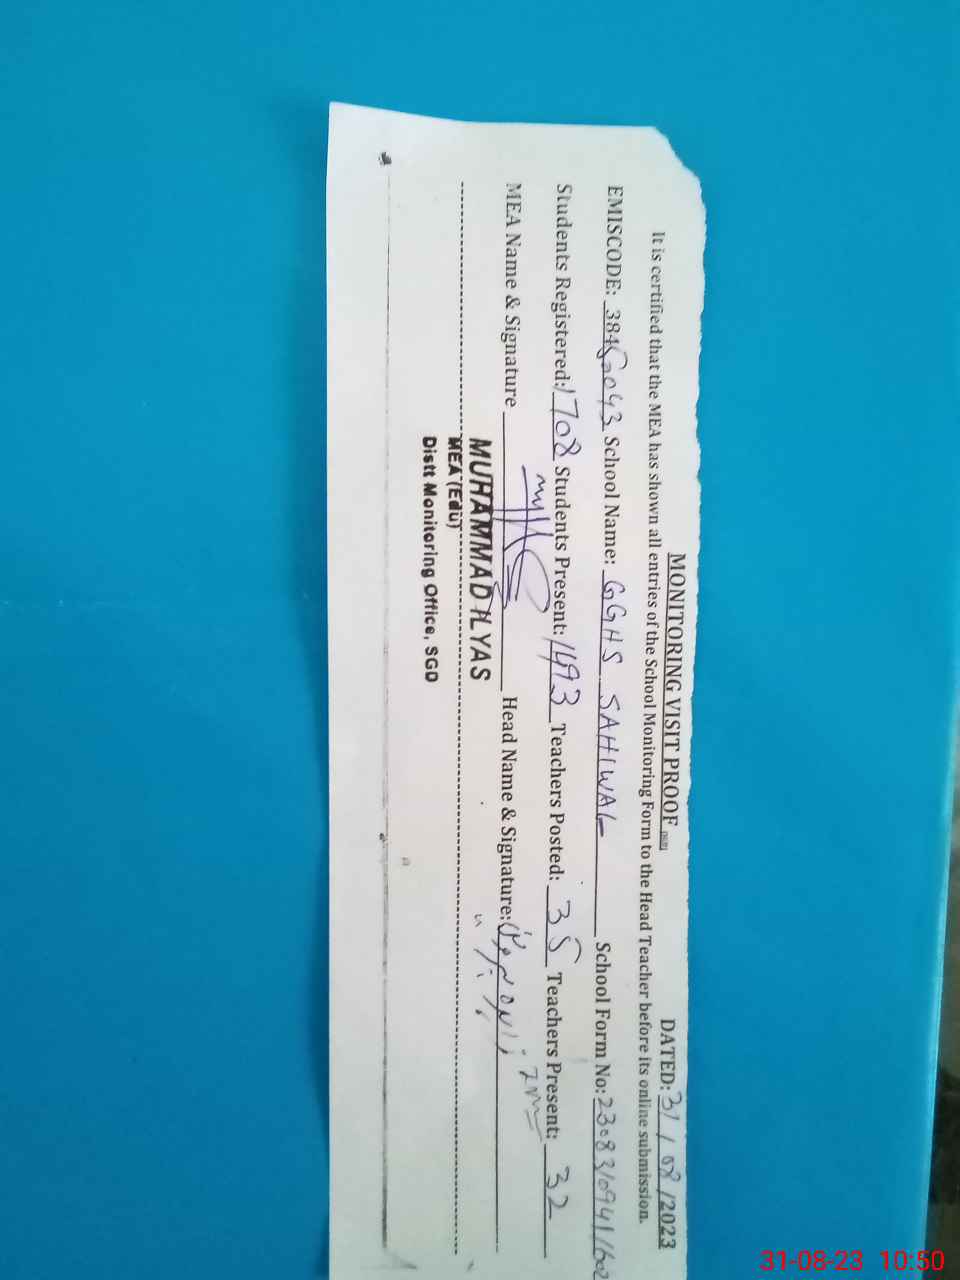 MONITORING VISIT PROOF DATED: 31/08/2023
It is certified that the MEA has shown all entries of the School Monitoring Form to the Head Teacher before its online submission.
EMISCODE: 38460043 School Name: GGHS SAHIWAL School Form No: 23083109411602
Students Registered: 1708 Students Present: 1493 Teachers Posted: 35 Teachers Present: 32
MEA Name & Signature Head Name & Signature:
MUHAMMAD ILYAS
MEA (Edu)
Distt Monitoring Office, SGD
31-08-23 10:50